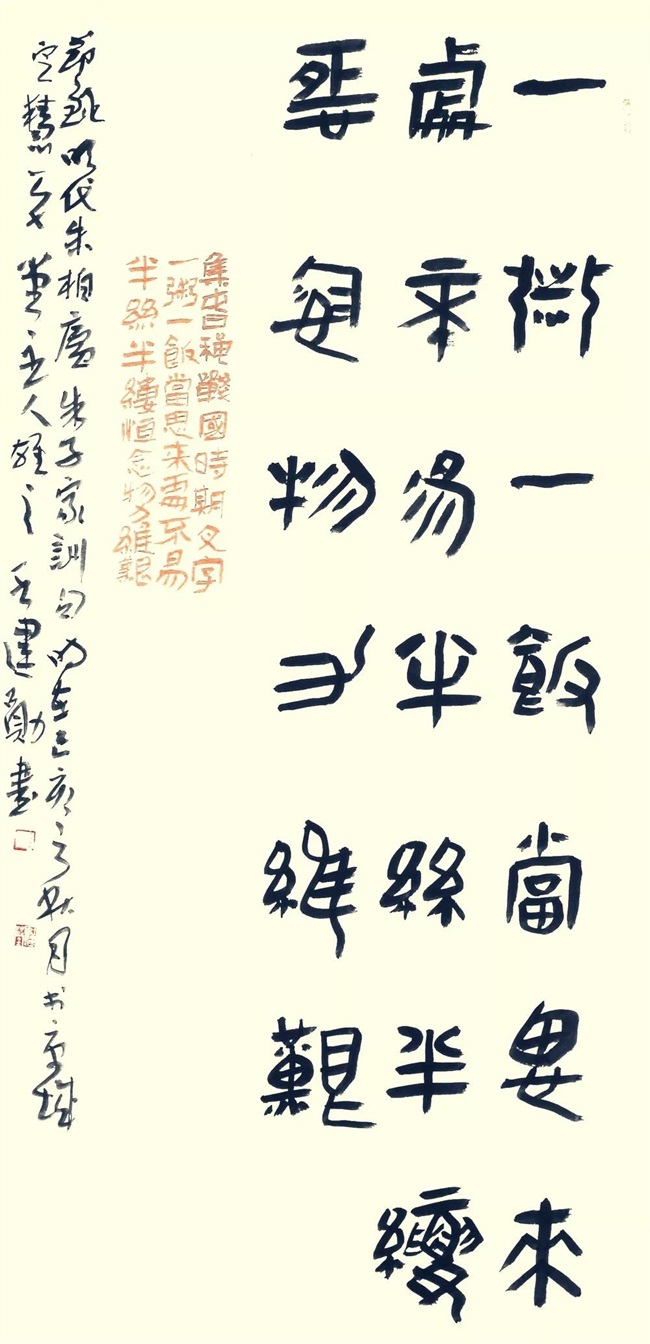 一粥一飯當思來
處不易半絲半縷
恆念物力維艱
集曾穆戰國時期文字
一粥一飯當思来處不易
半絲半縷恒念物力維艱
節錄明代朱柏廬朱子家訓句时在己亥之秋月书京城
主人雄之建勛書